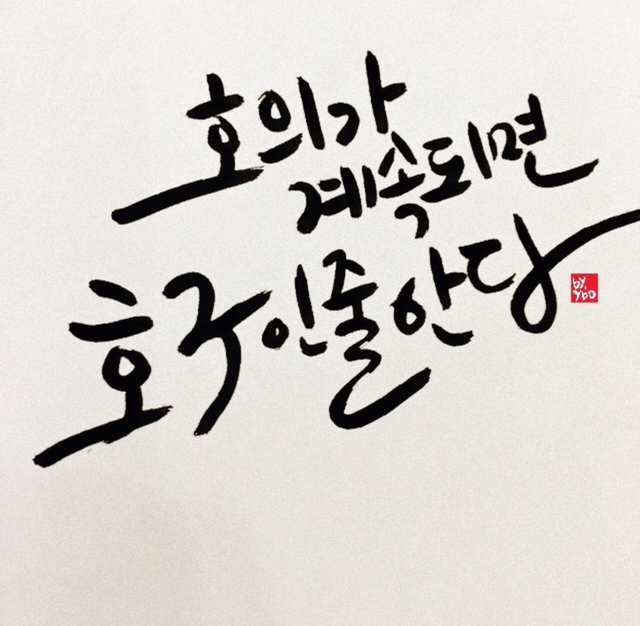 호의가
계속되면
호구인줄안다
by.
ybo